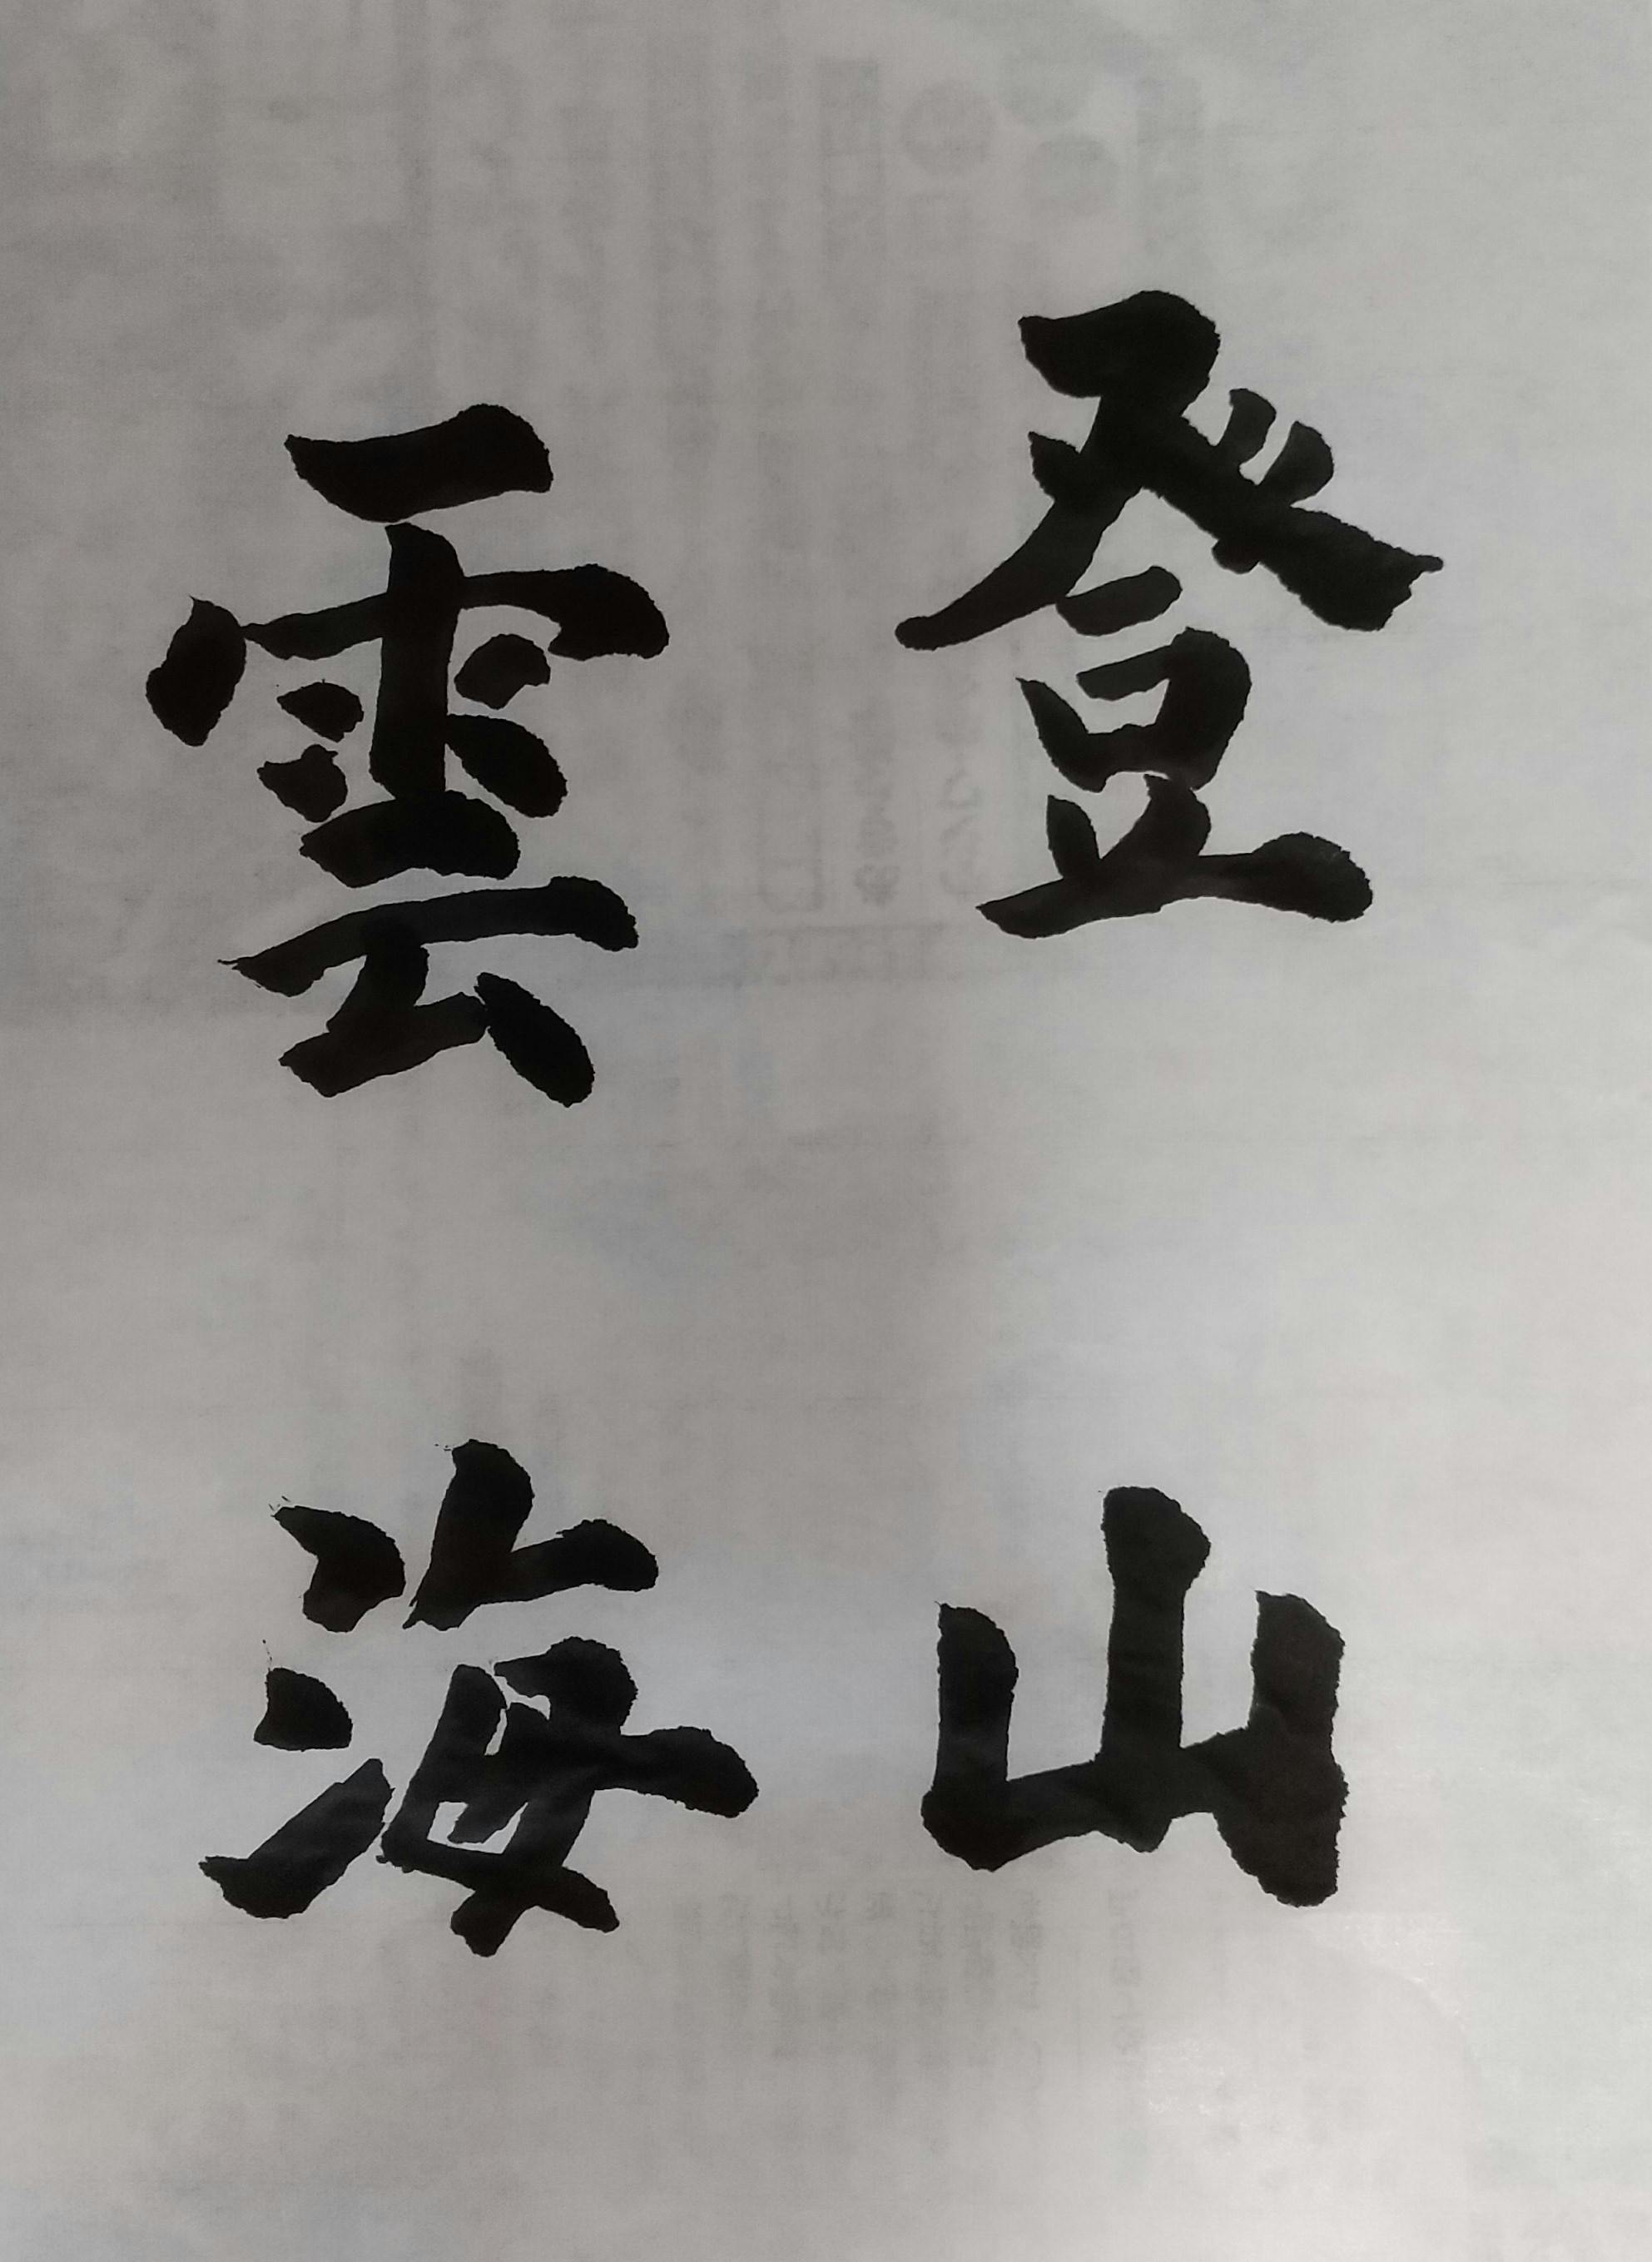 登山
雲海